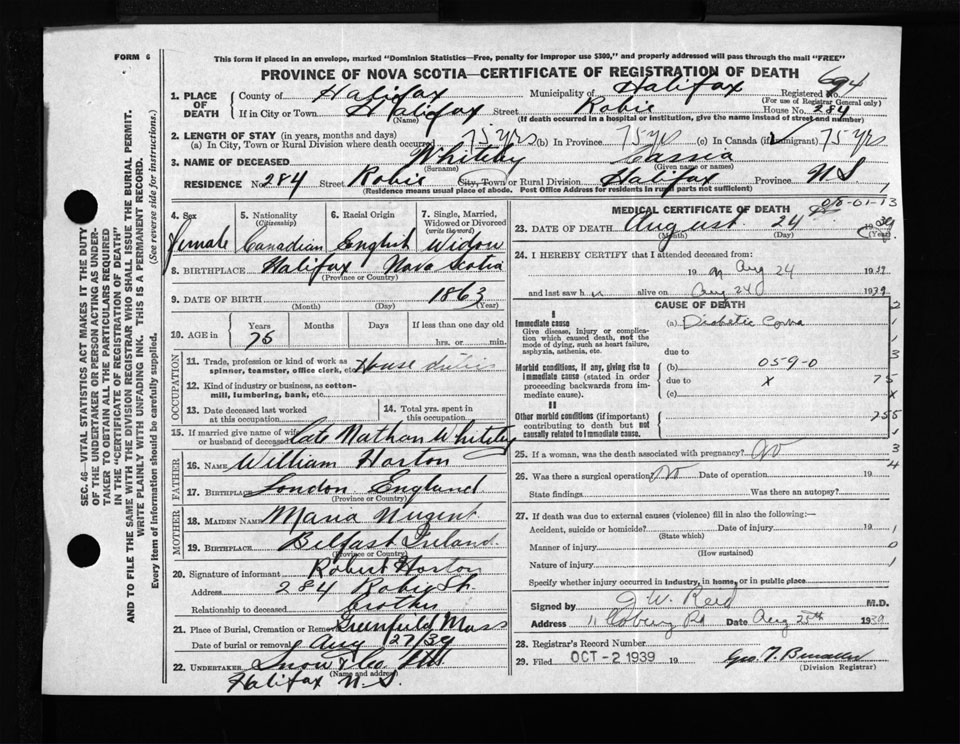 FORM 6
This form if placed in an envelope, marked "Dominion Statistics—Free, penalty for improper use $300," and properly addressed will pass through the mail "FREE"
PROVINCE OF NOVA SCOTIA—CERTIFICATE OF REGISTRATION OF DEATH
1. PLACE OF DEATH
County of Halifax Municipality of Halifax Registered No. 694
(For use of Registrar General only)
If in City or Town Halifax Street Robie House No. 284
(Name) (If death occurred in a hospital or institution, give the name instead of street and number)
2. LENGTH OF STAY (in years, months and days)
(a) In City, Town or Rural Division where death occurred 75 yrs (b) In Province 75 yrs (c) In Canada (if immigrant) 75 yrs
3. NAME OF DECEASED Whiteley Cassia
(Surname) (Given name or names)
RESIDENCE No. 284 Street Robie City, Town or Rural Division Halifax Province N S
(Residence means usual place of abode. Post Office Address for residents in rural parts not sufficient)
4. Sex
female
5. Nationality
(Citizenship)
Canadian
6. Racial Origin
English
7. Single, Married, Widowed or Divorced
(write the word)
Widow
8. BIRTHPLACE Halifax Nova Scotia
(Province or Country)
9. DATE OF BIRTH 1863
(Month) (Day) (Year)
10. AGE in
Years Months Days If less than one day old
75 hrs. or min.
OCCUPATION
11. Trade, profession or kind of work as spinner, teamster, office clerk, etc. House
12. Kind of industry or business, as cotton-mill, lumbering, bank, etc.
13. Date deceased last worked at this occupation
14. Total yrs. spent in this occupation
15. If married give name of wife or husband of deceased late Nathan Whiteley
FATHER
16. NAME William Horton
17. BIRTHPLACE London England
(Province or Country)
MOTHER
18. MAIDEN NAME Maria Nugent
19. BIRTHPLACE Belfast Ireland
(Province or Country)
20. Signature of informant Robert Horton
Address 284 Robie St
Relationship to deceased brother
21. Place of Burial, Cremation or Removal Greenfield Mass
Date of burial or removal Aug 27/39
22. UNDERTAKER Snow & Co Ltd
(Name and address)
Halifax N.S.
MEDICAL CERTIFICATE OF DEATH
23. DATE OF DEATH August 24 1939
(Month) (Day) (Year)
24. I HEREBY CERTIFY that I attended deceased from:
Aug 24 1939
and last saw h alive on Aug 24 1939
CAUSE OF DEATH
I
Immediate cause
Give disease, injury or complication which caused death, not the mode of dying, such as heart failure, asphyxia, asthenia, etc.
(a) Diabetic Coma
due to
Morbid conditions, if any, giving rise to immediate cause (stated in order proceeding backwards from immediate cause).
(b) 059-0
due to x
(c)
II
Other morbid conditions (if important) contributing to death but not causally related to immediate cause.
25. If a woman, was the death associated with pregnancy? No
26. Was there a surgical operation? No Date of operation 19
State findings Was there an autopsy?
27. If death was due to external causes (violence) fill in also the following:—
Accident, suicide or homicide? Date of injury 19
(State which)
Manner of injury
(How sustained)
Nature of injury
Specify whether injury occurred in industry, in home, or in public place
Signed by J W. Reid M.D.
Address 11 Coburg Rd Date Aug 25th 1939
28. Registrar's Record Number
29. Filed OCT - 2 1939 19
(Division Registrar)
SEC. 46—VITAL STATISTICS ACT MAKES IT THE DUTY
OF THE UNDERTAKER OR PERSON ACTING AS UNDER-
TAKER TO OBTAIN ALL THE PARTICULARS REQUIRED
IN THE "CERTIFICATE OF REGISTRATION OF DEATH"
AND TO FILE THE SAME WITH THE DIVISION REGISTRAR WHO SHALL ISSUE THE BURIAL PERMIT.
WRITE PLAINLY WITH UNFADING INK. THIS IS A PERMANENT RECORD.
Every item of information should be carefully supplied. (See reverse side for instructions.)